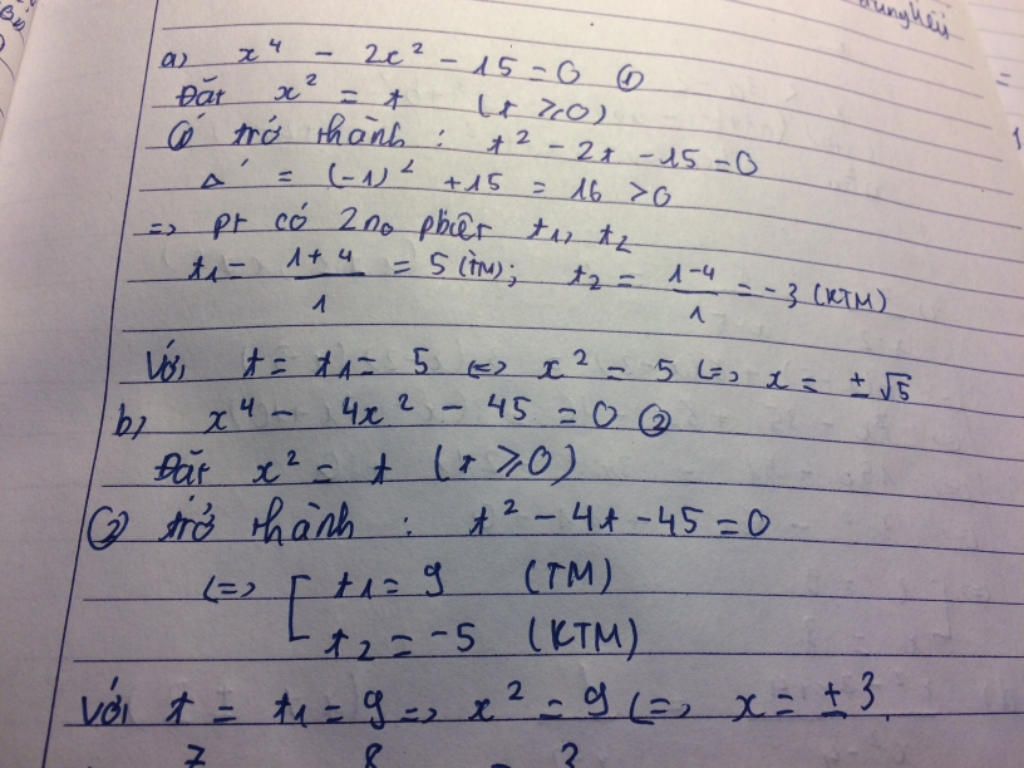 a) x⁴ - 2x² - 15 = 0 ①
Đặt x² = t (t ≥ 0)
① trở thành : t² - 2t - 15 = 0
Δ' = (-1)² + 15 = 16 > 0
=> pt có 2 no pbiệt t1, t2
t1 = (1+4)/1 = 5 (TM); t2 = (1-4)/1 = -3 (KTM)
Với t = t1 = 5 <=> x² = 5 <=> x = ±√5
b) x⁴ - 4x² - 45 = 0 ②
Đặt x² = t (t ≥ 0)
② trở thành : t² - 4t - 45 = 0
<=> [ t1 = 9 (TM)
t2 = -5 (KTM)
Với t = t1 = 9 => x² = 9 <=> x = ±3